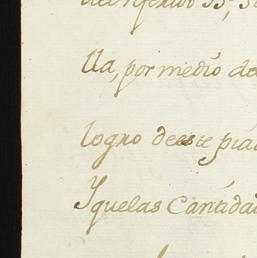 lla, por medio de
logro de este pia
Y que las Cantida